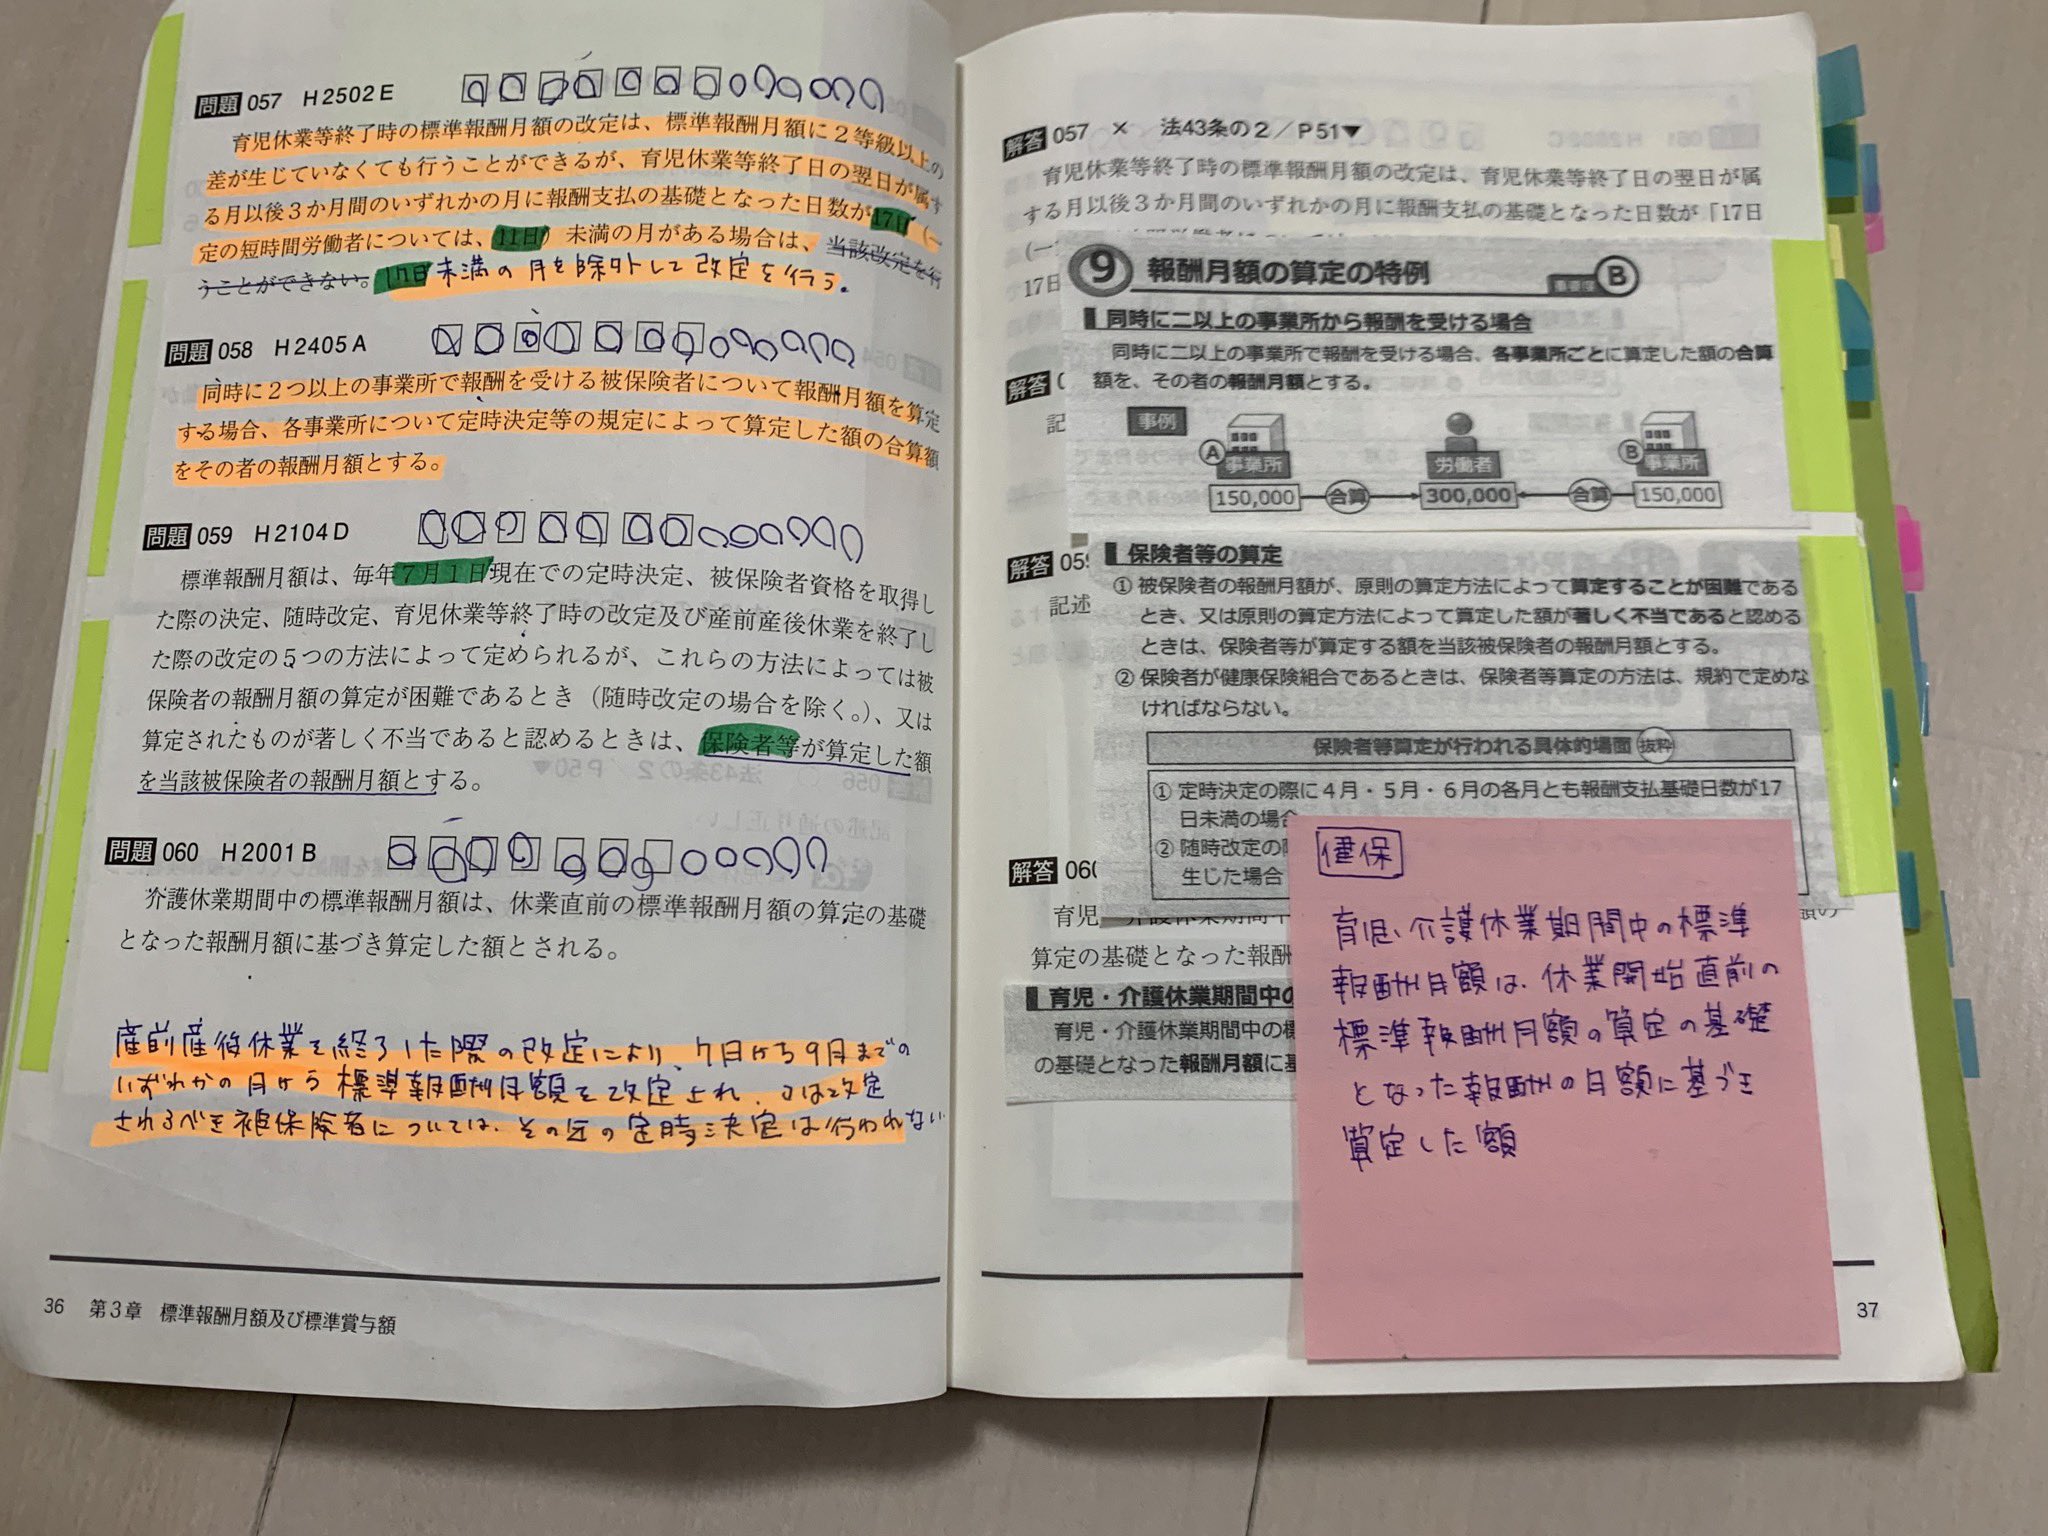 問題 057 H2502E
育児休業等終了時の標準報酬月額の改定は、標準報酬月額に2等級以上の
差が生じていなくても行うことができるが、育児休業等終了日の翌日が属す
る月以後3か月間のいずれかの月に報酬支払の基礎となった日数が17日(一
定の短時間労働者については、11日)未満の月がある場合は、当該改定を行
うことができない。17日未満の月を除外して改定を行う。
問題 058 H2405A
同時に2つ以上の事業所で報酬を受ける被保険者について報酬月額を算定
する場合、各事業所について定時決定等の規定によって算定した額の合算額
をその者の報酬月額とする。
問題 059 H2104D
標準報酬月額は、毎年7月1日現在での定時決定、被保険者資格を取得し
た際の決定、随時改定、育児休業等終了時の改定及び産前産後休業を終了し
た際の改定の5つの方法によって定められるが、これらの方法によっては被
保険者の報酬月額の算定が困難であるとき(随時改定の場合を除く。)、又は
算定されたものが著しく不当であると認めるときは、保険者等が算定した額
を当該被保険者の報酬月額とする。
問題 060 H2001B
介護休業期間中の標準報酬月額は、休業直前の標準報酬月額の算定の基礎
となった報酬月額に基づき算定した額とされる。
産前産後休業を終了した際の改定により、7月から9月までの
いずれかの月から標準報酬月額を改定され、又は改定
されるべき被保険者については、その年の定時決定は行われない
36 第3章 標準報酬月額及び標準賞与額
解答 057 × 法43条の2/P51▼
育児休業等終了時の標準報酬月額の改定は、育児休業等終了日の翌日が属
する月以後3か月間のいずれかの月に報酬支払の基礎となった日数が「17日
(一
17日
9 報酬月額の算定の特例 B
同時に二以上の事業所から報酬を受ける場合
同時に二以上の事業所で報酬を受ける場合、各事業所ごとに算定した額の合算
額を、その者の報酬月額とする。
解答 0
記
事例
A 事業所 労働者 B 事業所
150,000 合算 300,000 合算 150,000
解答 059
記述
保険者等の算定
① 被保険者の報酬月額が、原則の算定方法によって算定することが困難である
とき、又は原則の算定方法によって算定した額が著しく不当であると認める
ときは、保険者等が算定する額を当該被保険者の報酬月額とする。
② 保険者が健康保険組合であるときは、保険者等算定の方法は、規約で定めな
ければならない。
保険者等算定が行われる具体的場面 抜粋
① 定時決定の際に4月・5月・6月の各月とも報酬支払基礎日数が17
日未満の場合
② 随時改定の
生じた場合
解答 060
育児
算定の基礎となった報酬
育児・介護休業期間中の
育児・介護休業期間中の標
の基礎となった報酬月額に基
健保
育児、介護休業期間中の標準
報酬月額は、休業開始直前の
標準報酬月額の算定の基礎
となった報酬の月額に基づき
算定した額
37